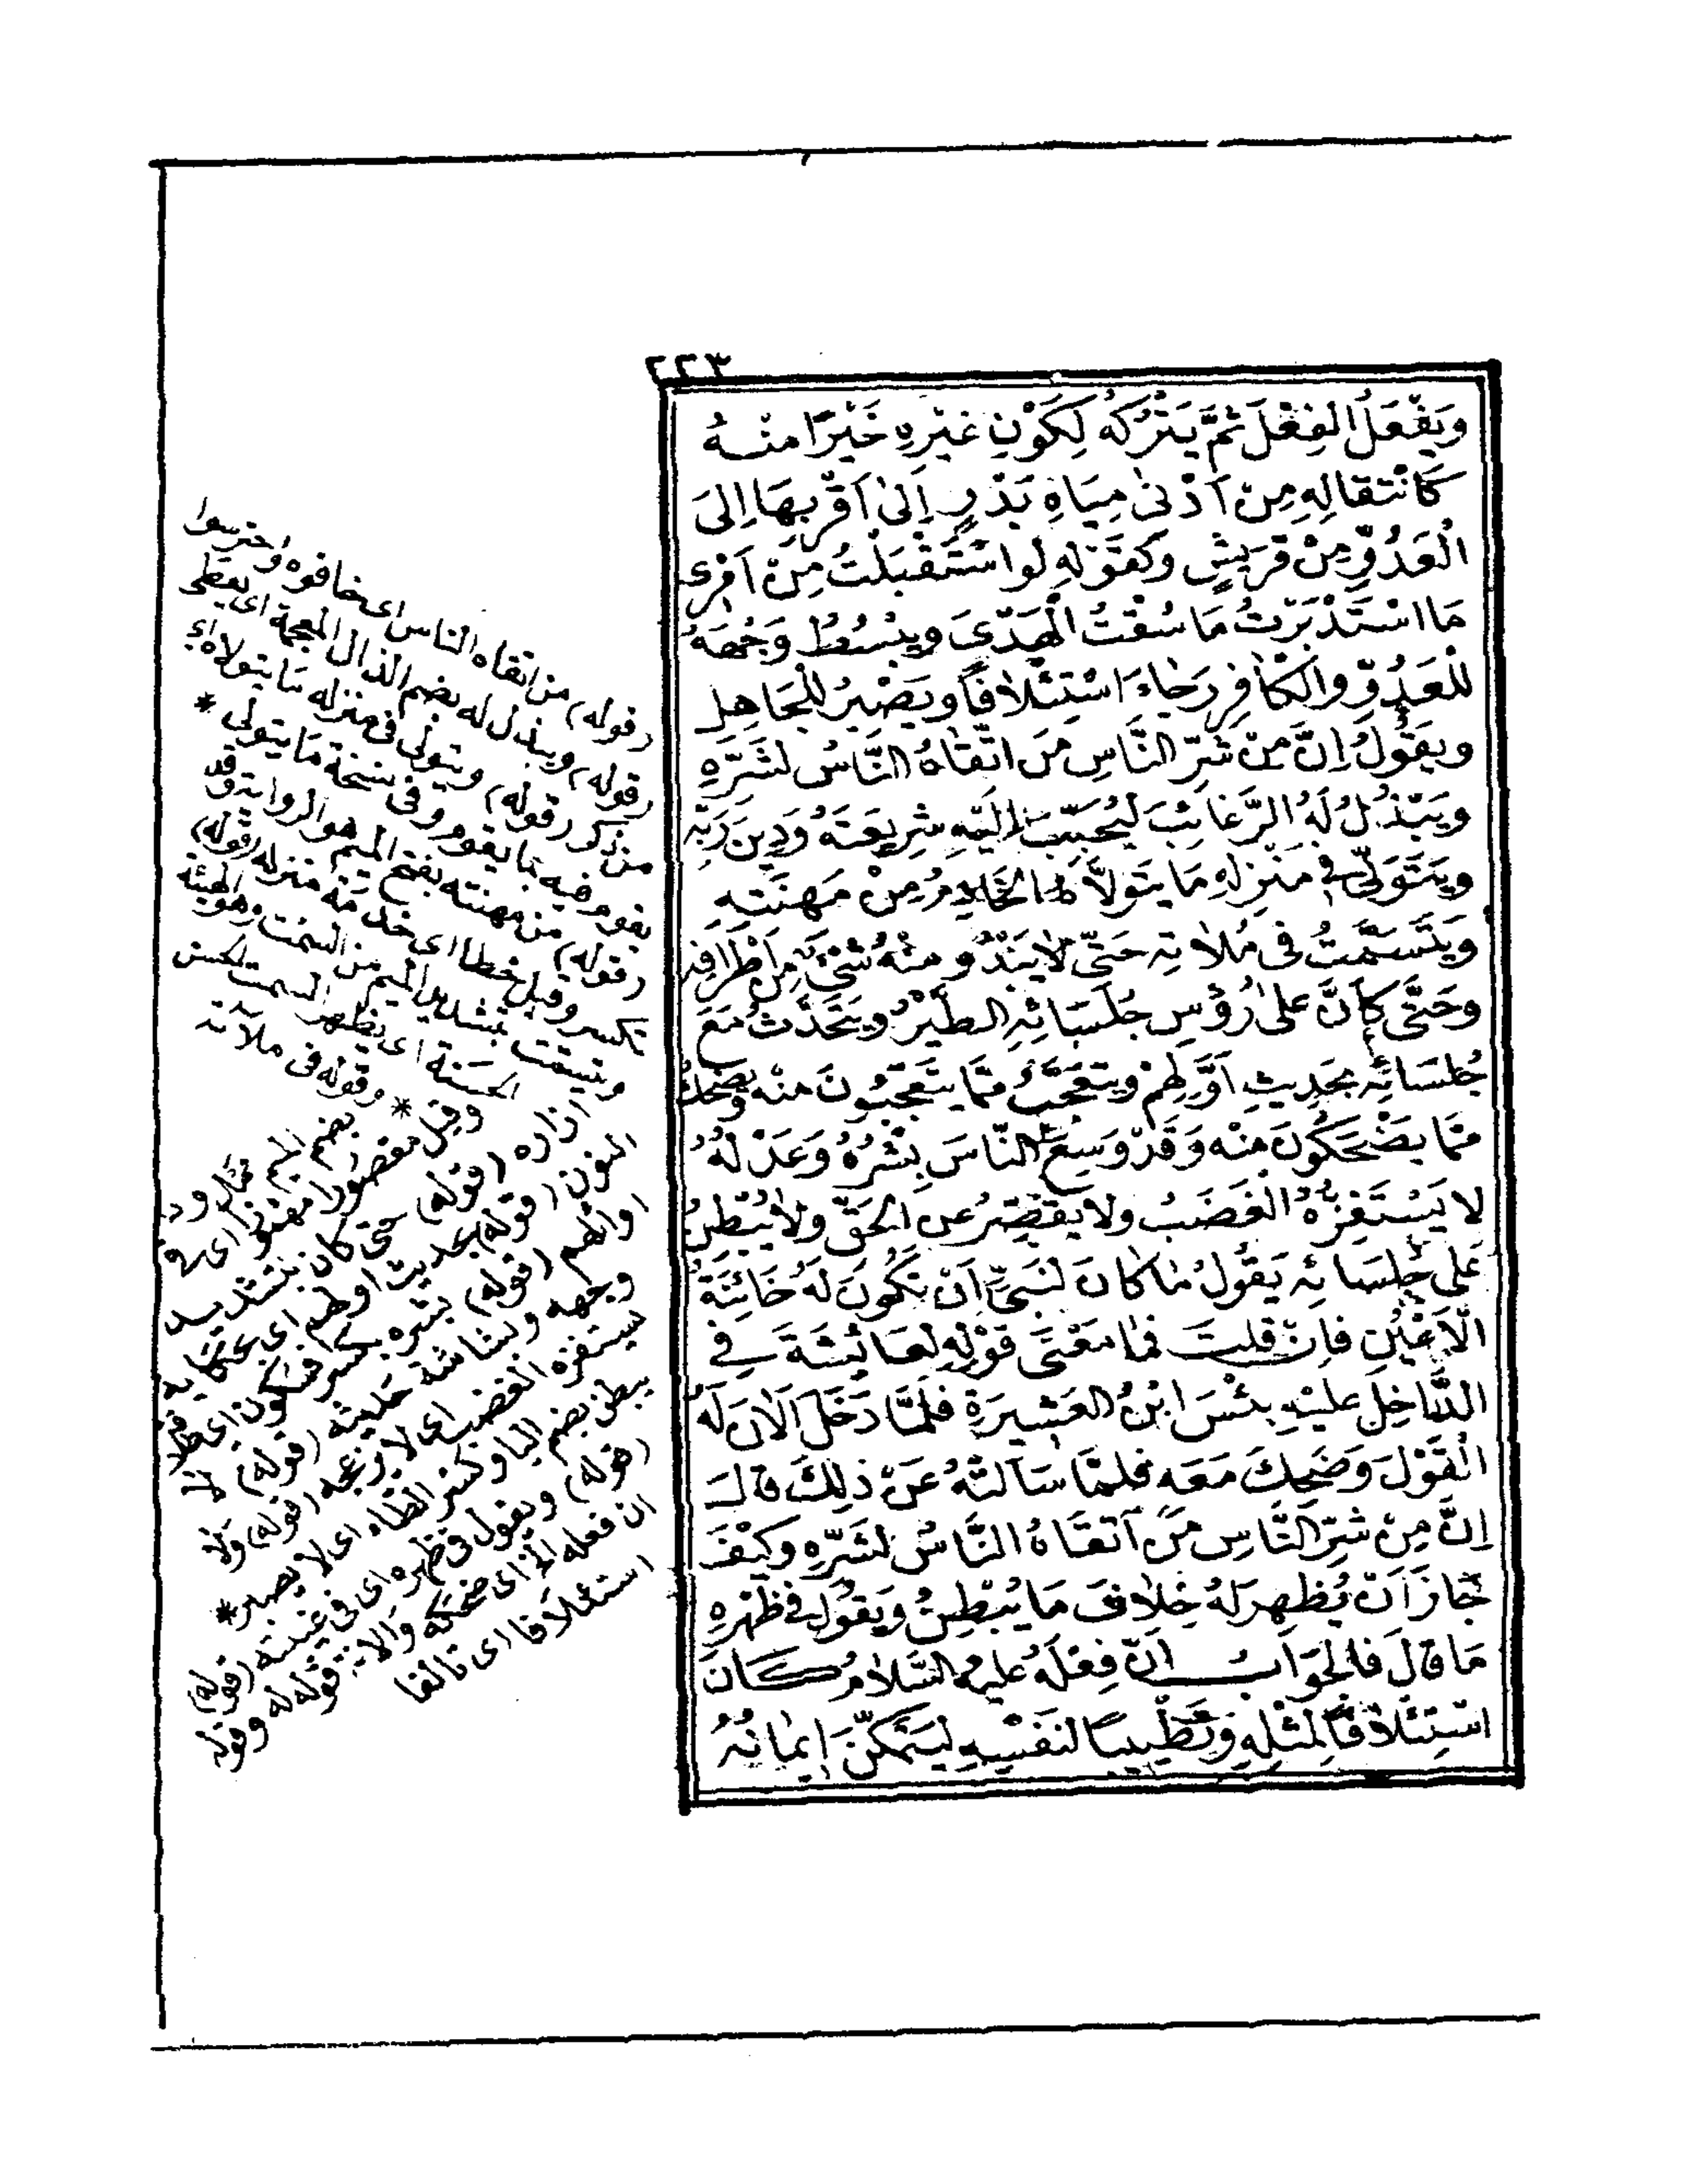 ٢٢٣
وَيَفْعَلُ الفِعْلَ ثُمَّ يَتْرُكُهُ لِكَوْنِ غَيْرِهِ خَيْرًا مِنْهُ
كَانْتِقَالِهِ مِنْ اَدْنىٰ مِيَاهِ بَدْرٍ اِلىٰ اَقْرَبِهَا اِلىَ
الْعَدُوِّ مِنْ قُرَيْشٍ وَكَقَوْلِهِ لَوِ اسْتَقْبَلْتُ مِنْ اَمْرِى
مَا اسْتَدْبَرْتُ مَا سُقْتُ الْهَدْىَ وَيَبْسُطُ وَجْهَهُ
لِلْعَدُوِّ وَالْكَافِرِ رَجَاءَ اسْتِئْلَافًا وَيَصْبِرُ لِلْجَاهِلِ
وَيَقُولُ اِنَّ مِنْ شَرِّ النَّاسِ مَنِ اتَّقَاهُ النَّاسُ لِشَرِّهِ
وَيَبْذُلُ لَهُ الرَّغَائِبَ لِيُحَبِّبَ اِلَيْهِ شَرِيعَتَهُ وَدِينَ رَبِّهِ
وَيَتَوَلَّى فِى مَنْزِلِهِ مَا يَتَوَلَّاهُ الْخَادِمُ مِنْ مَهْنَتِهِ
وَيَتَسَمَّتُ فِى مُلَاءَتِهِ حَتّٰى لَا يَبْدُوَ مِنْهُ شَىْءٌ مِنْ اَطْرَافِهِ
وَحَتّٰى كَاَنَّ عَلىٰ رُؤُسِ جُلَسَائِهِ الطَّيْرُ وَيَتَحَدَّثُ مَعَ
جُلَسَائِهِ بِحَدِيثِ اَوَّلِهِمْ وَيَتَعَجَّبُ مِمَّا يَتَعَجَّبُونَ مِنْهُ وَيَضْحَكُ
مِمَّا يَضْحَكُونَ مِنْهُ وَقَدْ وَسِعَ النَّاسَ بِشْرُهُ وَعَدْلُهُ
لَا يَسْتَفِزُّهُ الْغَضَبُ وَلَا يُقَصِّرُ عَنِ الْحَقِّ وَلَا يُبْطِنُ
عَلىٰ جُلَسَائِهِ يَقُولُ مَا كَانَ لِنَبِىٍّ اَنْ تَكُونَ لَهُ خَائِنَةُ
الْاَعْيُنِ فَاِنْ قُلْتَ فَمَا مَعْنَى قَوْلِهِ لِعَائِشَةَ فِى
الدَّاخِلِ عَلَيْهِ بِئْسَ ابْنُ الْعَشِيرَةِ فَلَمَّا دَخَلَ اَلَانَ لَهُ
الْقَوْلَ وَضَحِكَ مَعَهُ فَلَمَّا سَاَلَتْهُ عَنْ ذٰلِكَ قَالَ
اِنَّ مِنْ شَرِّ النَّاسِ مَنِ اتَّقَاهُ النَّاسُ لِشَرِّهِ وَكَيْفَ
جَازَ اَنْ يُظْهِرَ لَهُ خِلَافَ مَا يُبْطِنُ وَيَقُولَ فِى ظَهْرِهِ
مَا قَالَ فَالْجَوَابُ اَنَّ فِعْلَهُ عَلَيْهِ السَّلَامُ كَانَ
اسْتِئْلَافًا لِمِثْلِهِ وَتَطْيِيبًا لِنَفْسِهِ لِيَتَمَكَّنَ اِيمَانُهُ
(قوله) من اتقاه الناس اى خافوه واحترسوا
(قوله) ويبذل له بضم الذال المعجمة اى يعطى
من ذكر (قوله) ويتولى فى منزله ما يتولاه اى
يقوم فيه بما يقوم وفى نسخة ما يتولى *
(قوله) من مهنته بفتح الميم هو الرواية وقد
تكسر وقيل خطا اى خدمة منزله (قوله)
ويتسمت بتشديد الميم من السمت وهو الهيئة
الحسنة اى يظهر السمت الحسن
وقوله فى ملآته
بضم الميم ممدود
* وقيل مقصورا مهموزا اى فى
ازاره (قوله) حتى كان بتشديد
النون (قوله) بحديث اولهم اى بحكاية
اوائلهم (قوله) بشره بكسر فسكون اى طلاقة
وجهه وبشاشة جليته (قوله) لا
يستفزه الغضب اى لا يزعجه (قوله) ولا
يبطن بضم اليا وكسر الطاء اى لا يضمر *
(قوله) ويقول فى ظهره اى فى غيبته (قوله)
ان فعله اى ضحكه والانة قوله له وقوله
استئلافا اى تالفا